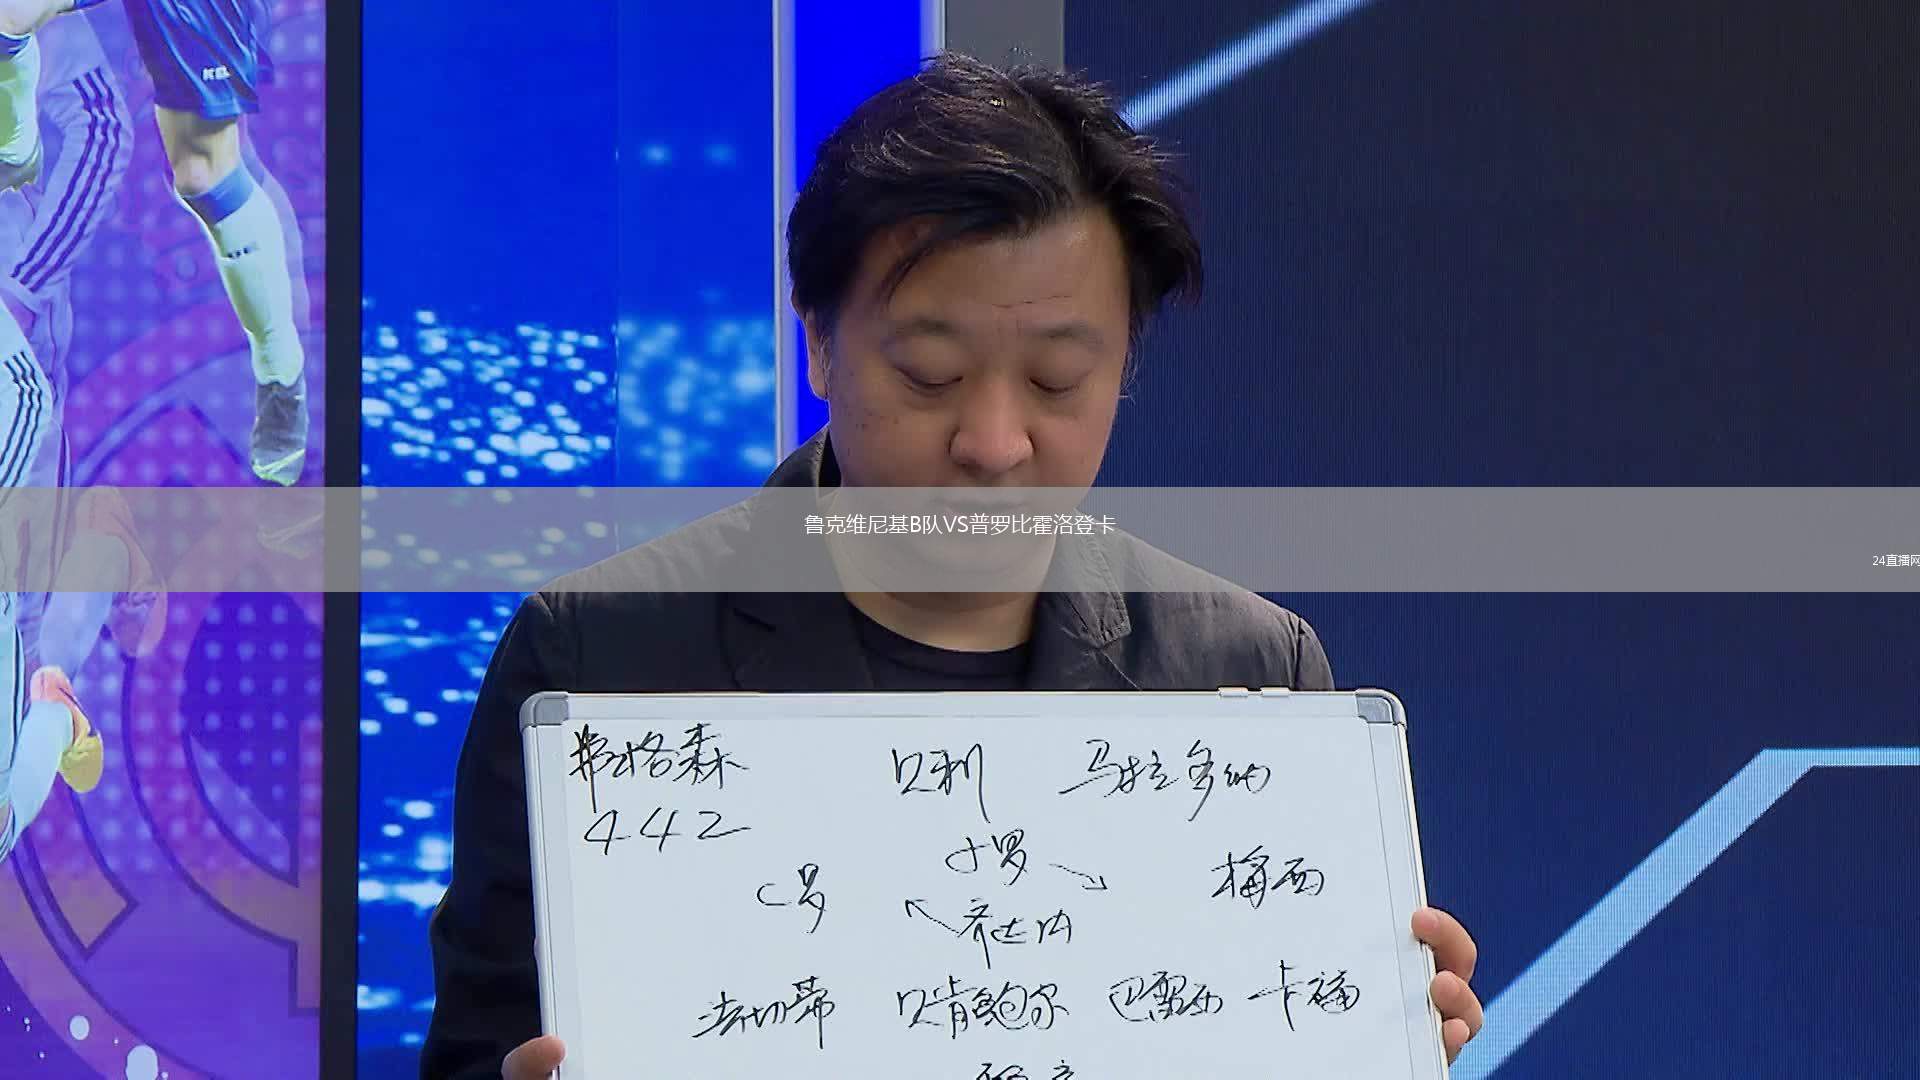 鲁克维尼基B队VS普罗比霍洛登卡
24直播网
弗格森 贝利 马拉多纳
442
小罗
C罗 梅西
齐达内
法切蒂 贝肯鲍尔 巴雷西 卡福